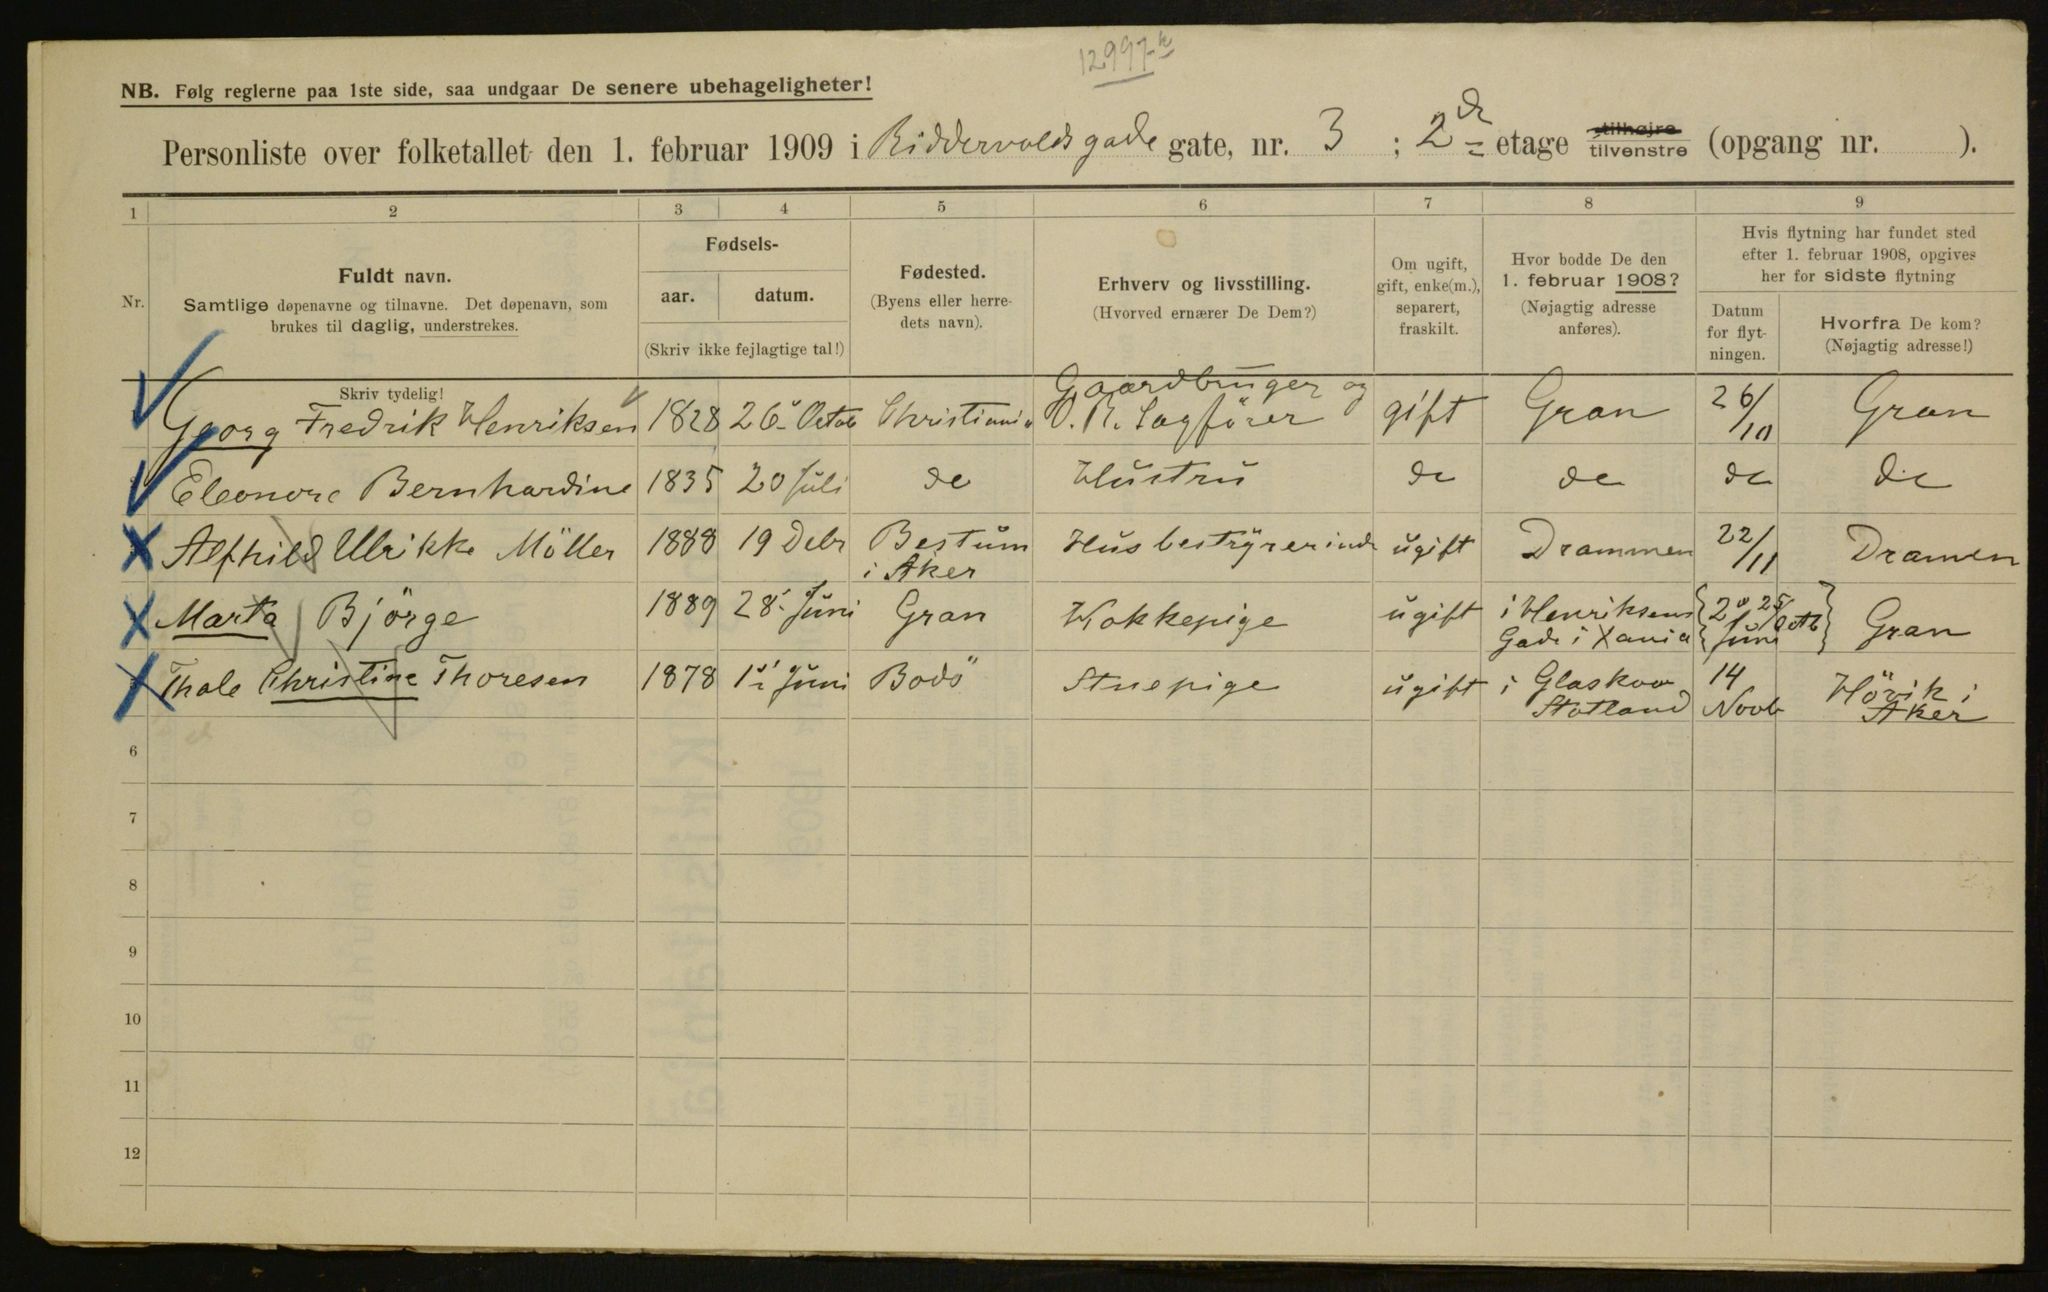 12997 k
NB. Følg reglerne paa 1ste side, saa undgaar De senere ubehageligheter!
Personliste over folketallet den 1. februar 1909 i Riddervolds gade gate, nr. 3 ; 2den etage tilhøjre tilvenstre (opgang nr. ).
1 2 3 4 5 6 7 8 9
Nr.
Fuldt navn.
Samtlige døpenavne og tilnavne. Det døpenavn, som
brukes til daglig, understrekes.
Skriv tydelig!
Fødsels-
aar. datum.
(Skriv ikke fejlagtige tal!)
Fødested.
(Byens eller herre-
dets navn).
Erhverv og livsstilling.
(Hvorved ernærer De Dem?)
Om ugift,
gift, enke(m.),
separert,
fraskilt.
Hvor bodde De den
1. februar 1908?
(Nøjagtig adresse
anføres).
Hvis flytning har fundet sted
efter 1. februar 1908, opgives
her for sidste flytning
Datum
for flyt-
ningen.
Hvorfra De kom?
(Nøjagtig adresse!)
Georg Fredrik Henriksen 1828 26 Octob Christiania Gaardbruger og O. R. Sagfører gift Gran 26/10 Gran
Eleonore Bernhardine 1835 20 Juli do Hustru do do do do
Alfhild Ulrikke Möller 1888 19 Debr Bestum i Aker Husbestyrerinde ugift Drammen 22/11 Dramen
Marta Björge 1889 28 Juni Gran Kokkepige ugift i Henriksens Gade i Xania Juni 25/Octb Gran
Thale Christine Thoresen 1878 1 Juni Bodö Stuepige ugift i Glaskow Skotland 14 Novb Hövik i Aker
6
7
8
9
10
11
12